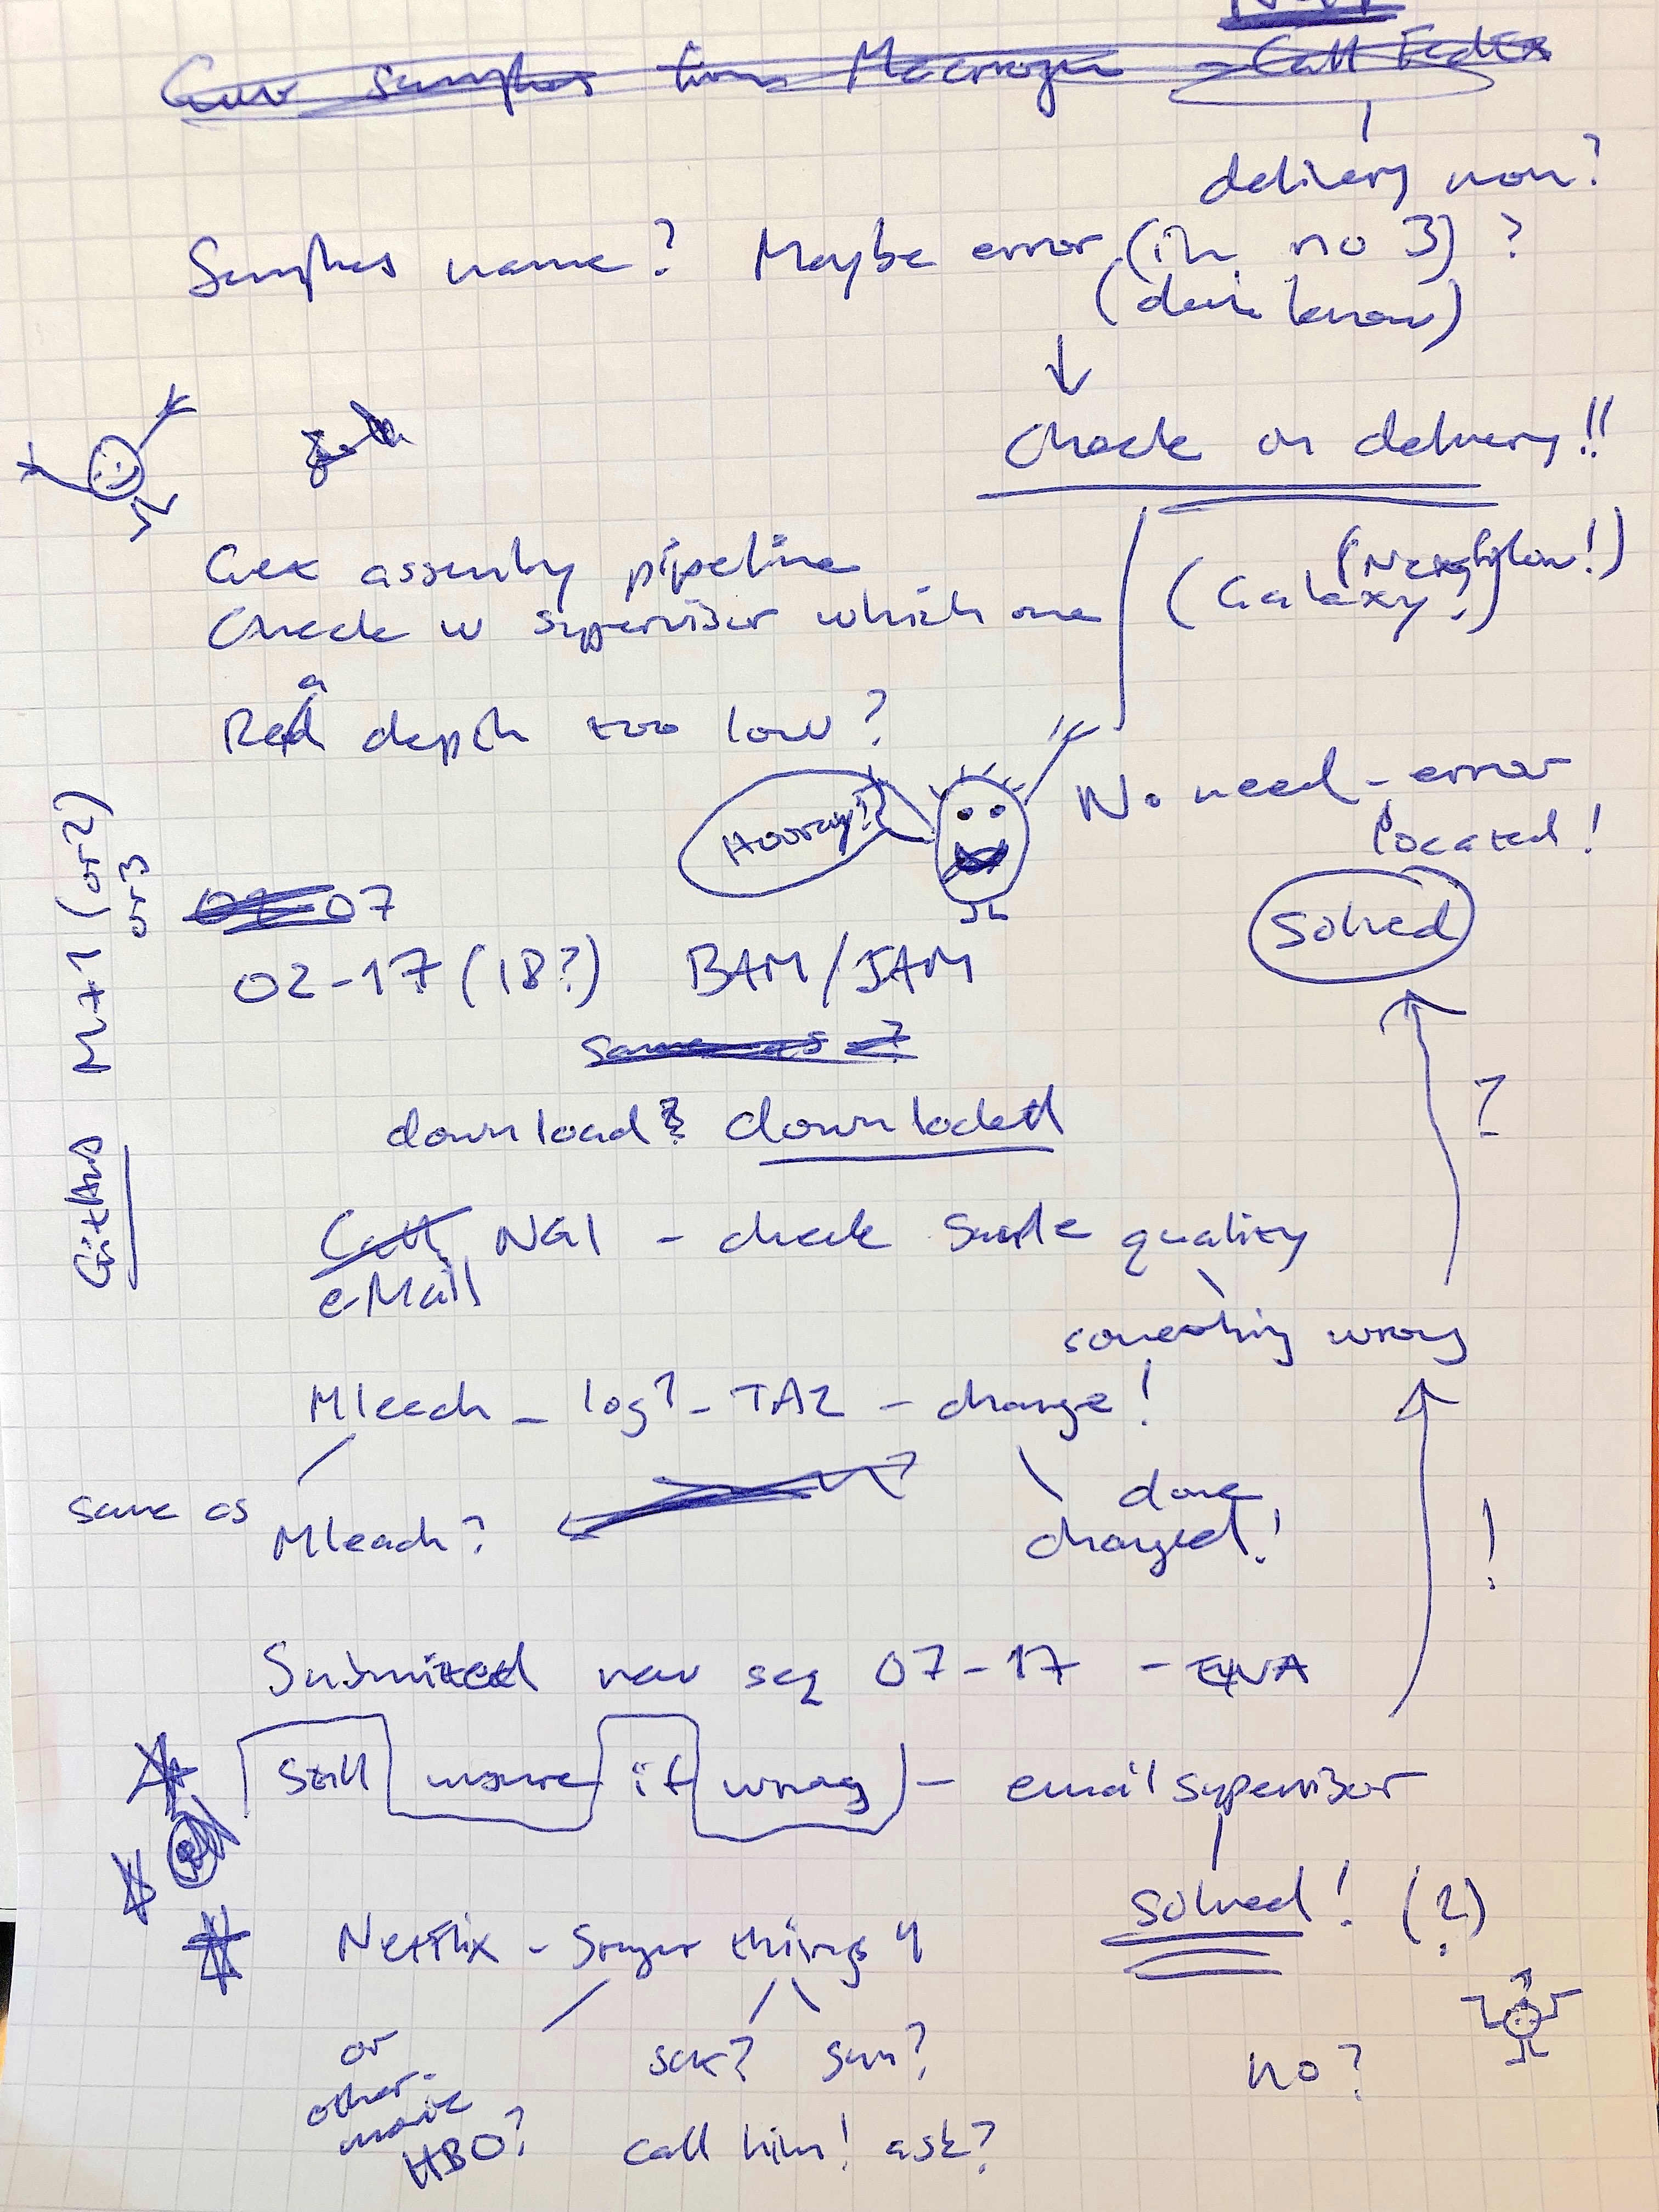 samples from Macrogen - Call FedEx
delivery now?
Samples name? Maybe error (in no 3) ?
(don't know)
Check on delivery!!
Gex assembly pipeline
(Nextflow!)
Check w supervisor which one
(Galaxy?)
Read depth too low?
No need - error
located!
Hooray!
Solved
M+1 (or 2)
or 3
07
02-17 (18?) BAM/JAM
same as ?
download? downloded
GitHub
Call NGI - check Sample quality
e-Mail
?
something wrong
Mleach - log? - TA2 - change!
same as
Mleach?
done
changed!
!
Submitted new seq 07-17 - ENA
Still unsure if wrong - email supervisor
solved! (?)
Netflix - Stranger things 4
or
other
movie
HBO?
sat? sun?
no?
call him! ask?